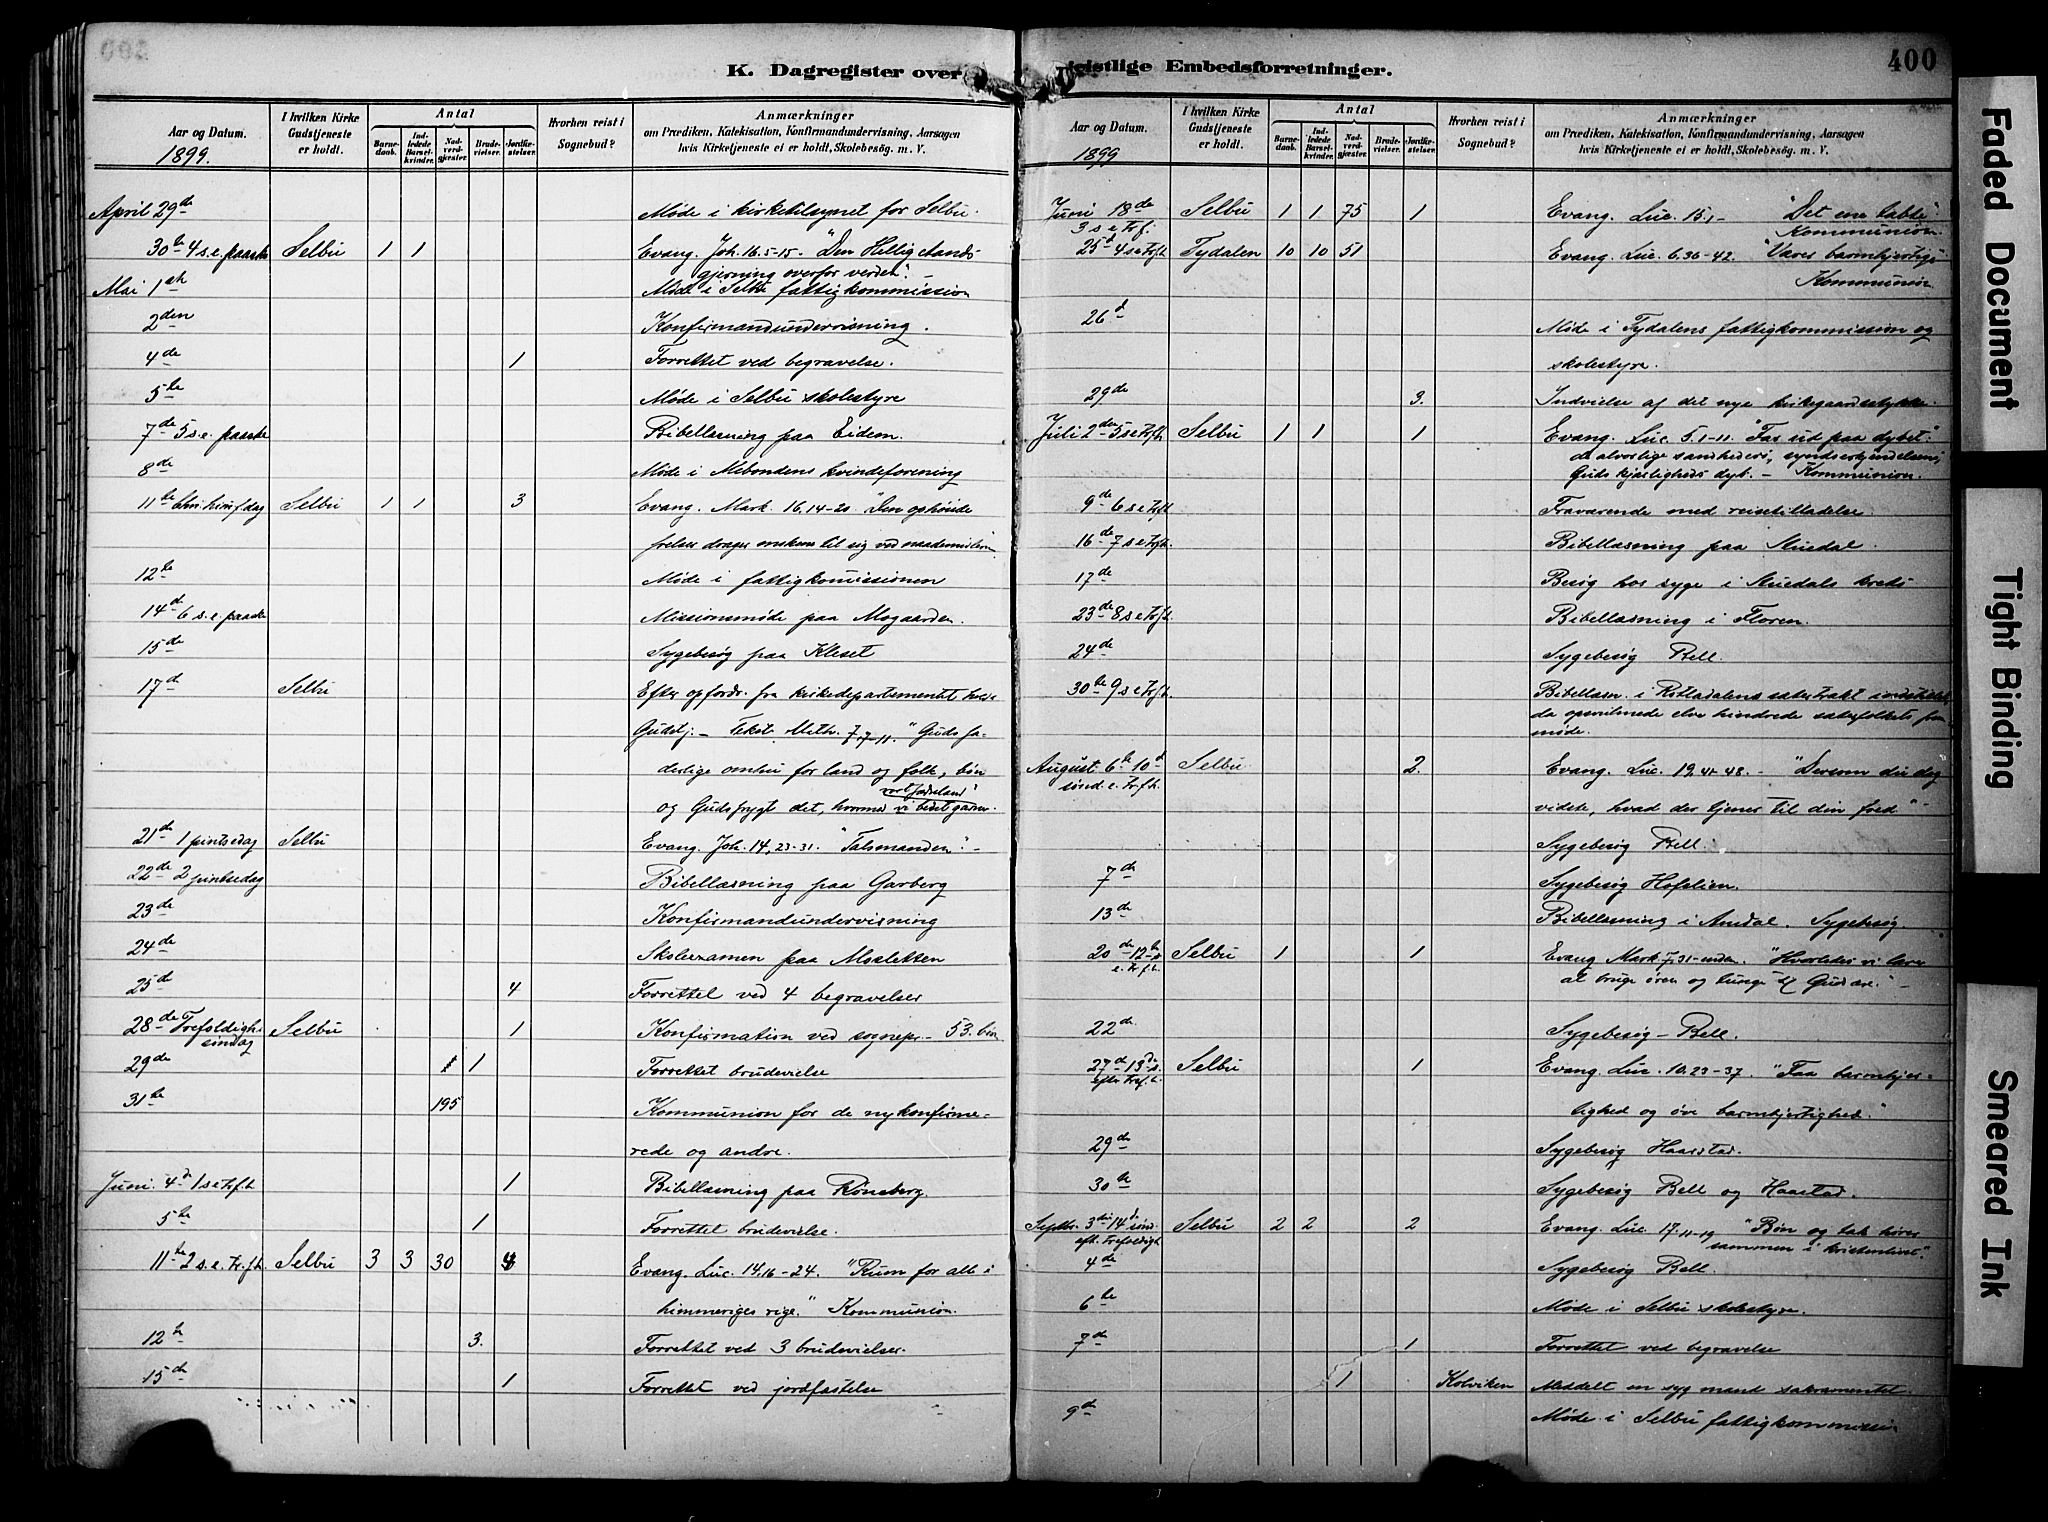 400
K. Dagregister over
eistlige Embedsforretninger.
Aar og Datum.
1899.
I hvilken Kirke
Gudstjeneste
er holdt.
Antal
Barne-
daab.
Ind-
ledede
Barsel-
kvinder.
Nad-
verd-
gjæster.
Brude-
vielser.
Jordfæ-
stelser.
Hvorhen reist i
Sognebud?
Anmærkninger
om Prædiken, Katekisation, Konfirmandundervisning, Aarsagen
hvis Kirketjeneste ei er holdt, Skolebesøg. m. V.
April 29de Møde i kirketilsynet for Selbu.
30te 4 s.e. paaske Selbu 1 1 Evang. Joh. 16.5-15. "Den Hellig Aands
gjerning overfor verden". –
Mai 1ste Møde i Selbu fattigkommission
2den Konfirmandundervisning.
4de 1 Forrettet ved begravelse.
5te Møde i Selbu skolestyre
7de 5 s.e. paaske Bibellæsning paa Eidem.
8de Møde i Mebondens kvindeforening
11te Chri. himf dag Selbu 1 1 3 Evang. Mark. 16.14-20 "Den ophøiede
frelser drager til sig ved naademidlerne
12te Møde i fattigkomissionen
14de 6 s.e. paaske Missionsmøde paa Mogaarden.
15de Sygebesøg paa Kleset
17de Selbu Efter opfordr. fra kirkedepartementet
Gudstj. – Tekst Mth. 7.7-11. "Guds fa-
derlige omhu for land og folk, bøn
vort fædreland"
og Gudsfrygt det, hvormed vi bedst gavner.
21de 1 pintsedag Selbu Evang. Joh. 14, 23-31. "Talsmanden". –
22de 2 pintsedag Bibellæsning paa Garberg
23de Konfirmandundervisning
24de Skoleexamen paa Mosletten
25de 4 Forrettet ved 4 begravelser
28de Trefoldigh. Selbu 1 Konfirmation ved sognepr. – 53. børn
søndag
29de 1 Forrettet brudevielse
31te 195 Kommunion for de nykonfirme-
rede og andre.
Juni. 4de 1 s e trf.h 1 Bibellæsning paa Røneberg.
5te 1 Forrettet brudevielse.
11te 2 s.e. Tr.f.h. Selbu 3 3 30 4 Evang. Luc. 14.16-24. "Rum for alle i
himmeriges rige." Kommunion.
12te 3. Forrettet ved 3 brudevielser.
15de 1 Forrettet ved jordfæstelse
Aar og Datum.
1899
I hvilken Kirke
Gudstjeneste
er holdt.
Antal
Barne-
daab.
Ind-
ledede
Barsel-
kvinder.
Nad-
verd-
gjæster.
Brude-
vielser.
Jordfæ-
stelser.
Hvorhen reist i
Sognebud?
Anmærkninger
om Prædiken, Katekisation, Konfirmandundervisning, Aarsagen
hvis Kirketjeneste ei er holdt, Skolebesøg. m. V.
Juni 18de Selbu 1 1 75 1 Evang. Luc. 15.1– "Det ene tabte"
3 s e Tr.f. Kommunion.
25d 4 s e Tr.f.h Tydalen 10 10 51 Evang. Luc. 6.36-42. "Værer barmhjertige"
Kommunion
26d Møde i Tydalens fattigkommission og
skolestyre.
29de 3. Indvielse af det nye kirkegaardsstykke.
Juli 2de 5 s e Tr.f.h. Selbu 1 1 1 Evang. Luc. 5.1-11. "Far ud paa dybet".
de alvorlige sandheders, syndserkjendelsens,
Guds kjærligheds dyb. – Kommunion.
9de 6 s e Tr.f.h Fraværende med reisetilladelse.
16de 7 s e Tr.f.h. Bibellæsning paa Stuedal.
17de Besøg hos syge i Stuedals kreds
23de 8 s e Tr.f.h. Bibellæsning i Floren.
24de Sygebesøg Bell.
30te 9 s e Tr.f.h. Bibellæsn. i Rotladalens sætertrakt
da opsvulmede elve hindrede sæterfolkets frem-
møde.
August 6te 10d Selbu 2. Evang. Luc. 19.41-48. – "Dersom du dog
sønd. e. Tr.f.h. vidste, hvad der tjener til din fred" –
Sygebesøg Bell.
7de Sygebesøg Hofslien.
13de Bibellæsning i Amdal. Sygebesøg.
20de 12te s. Selbu 1 1 Evang Mark 7,31-enden. "Hvorledes vi lære
e. Tr.f.h. at bruge øren og tunge til Guds ære." –
22de Sygebesøg – Bell.
27de 13de s. Selbu 1 Evang. Luc. 10.23-37. "Faa barmhjer-
efter Tref.h. tighed og øve barmhjertighed."
29de Sygebesøg Haarstad.
30te Sygebesøg Bell og Haarstad.
Septbr. 3die 14de sønd. Selbu 2 2 2 Evang. Luc. 17.11-19 "Bøn og tak hører
eft. Trefoldigh sammen i kristenlivet".
4de Sygebesøg Bell.
6te Møde i Selbu skolestyre.
7de 1 Forrettet ved begravelse
1 Kolviken Meddelt en syg mand sakramentet.
9de Møde i Selbu fattigkommission
Faded Document
Tight Binding
Smeared Ink